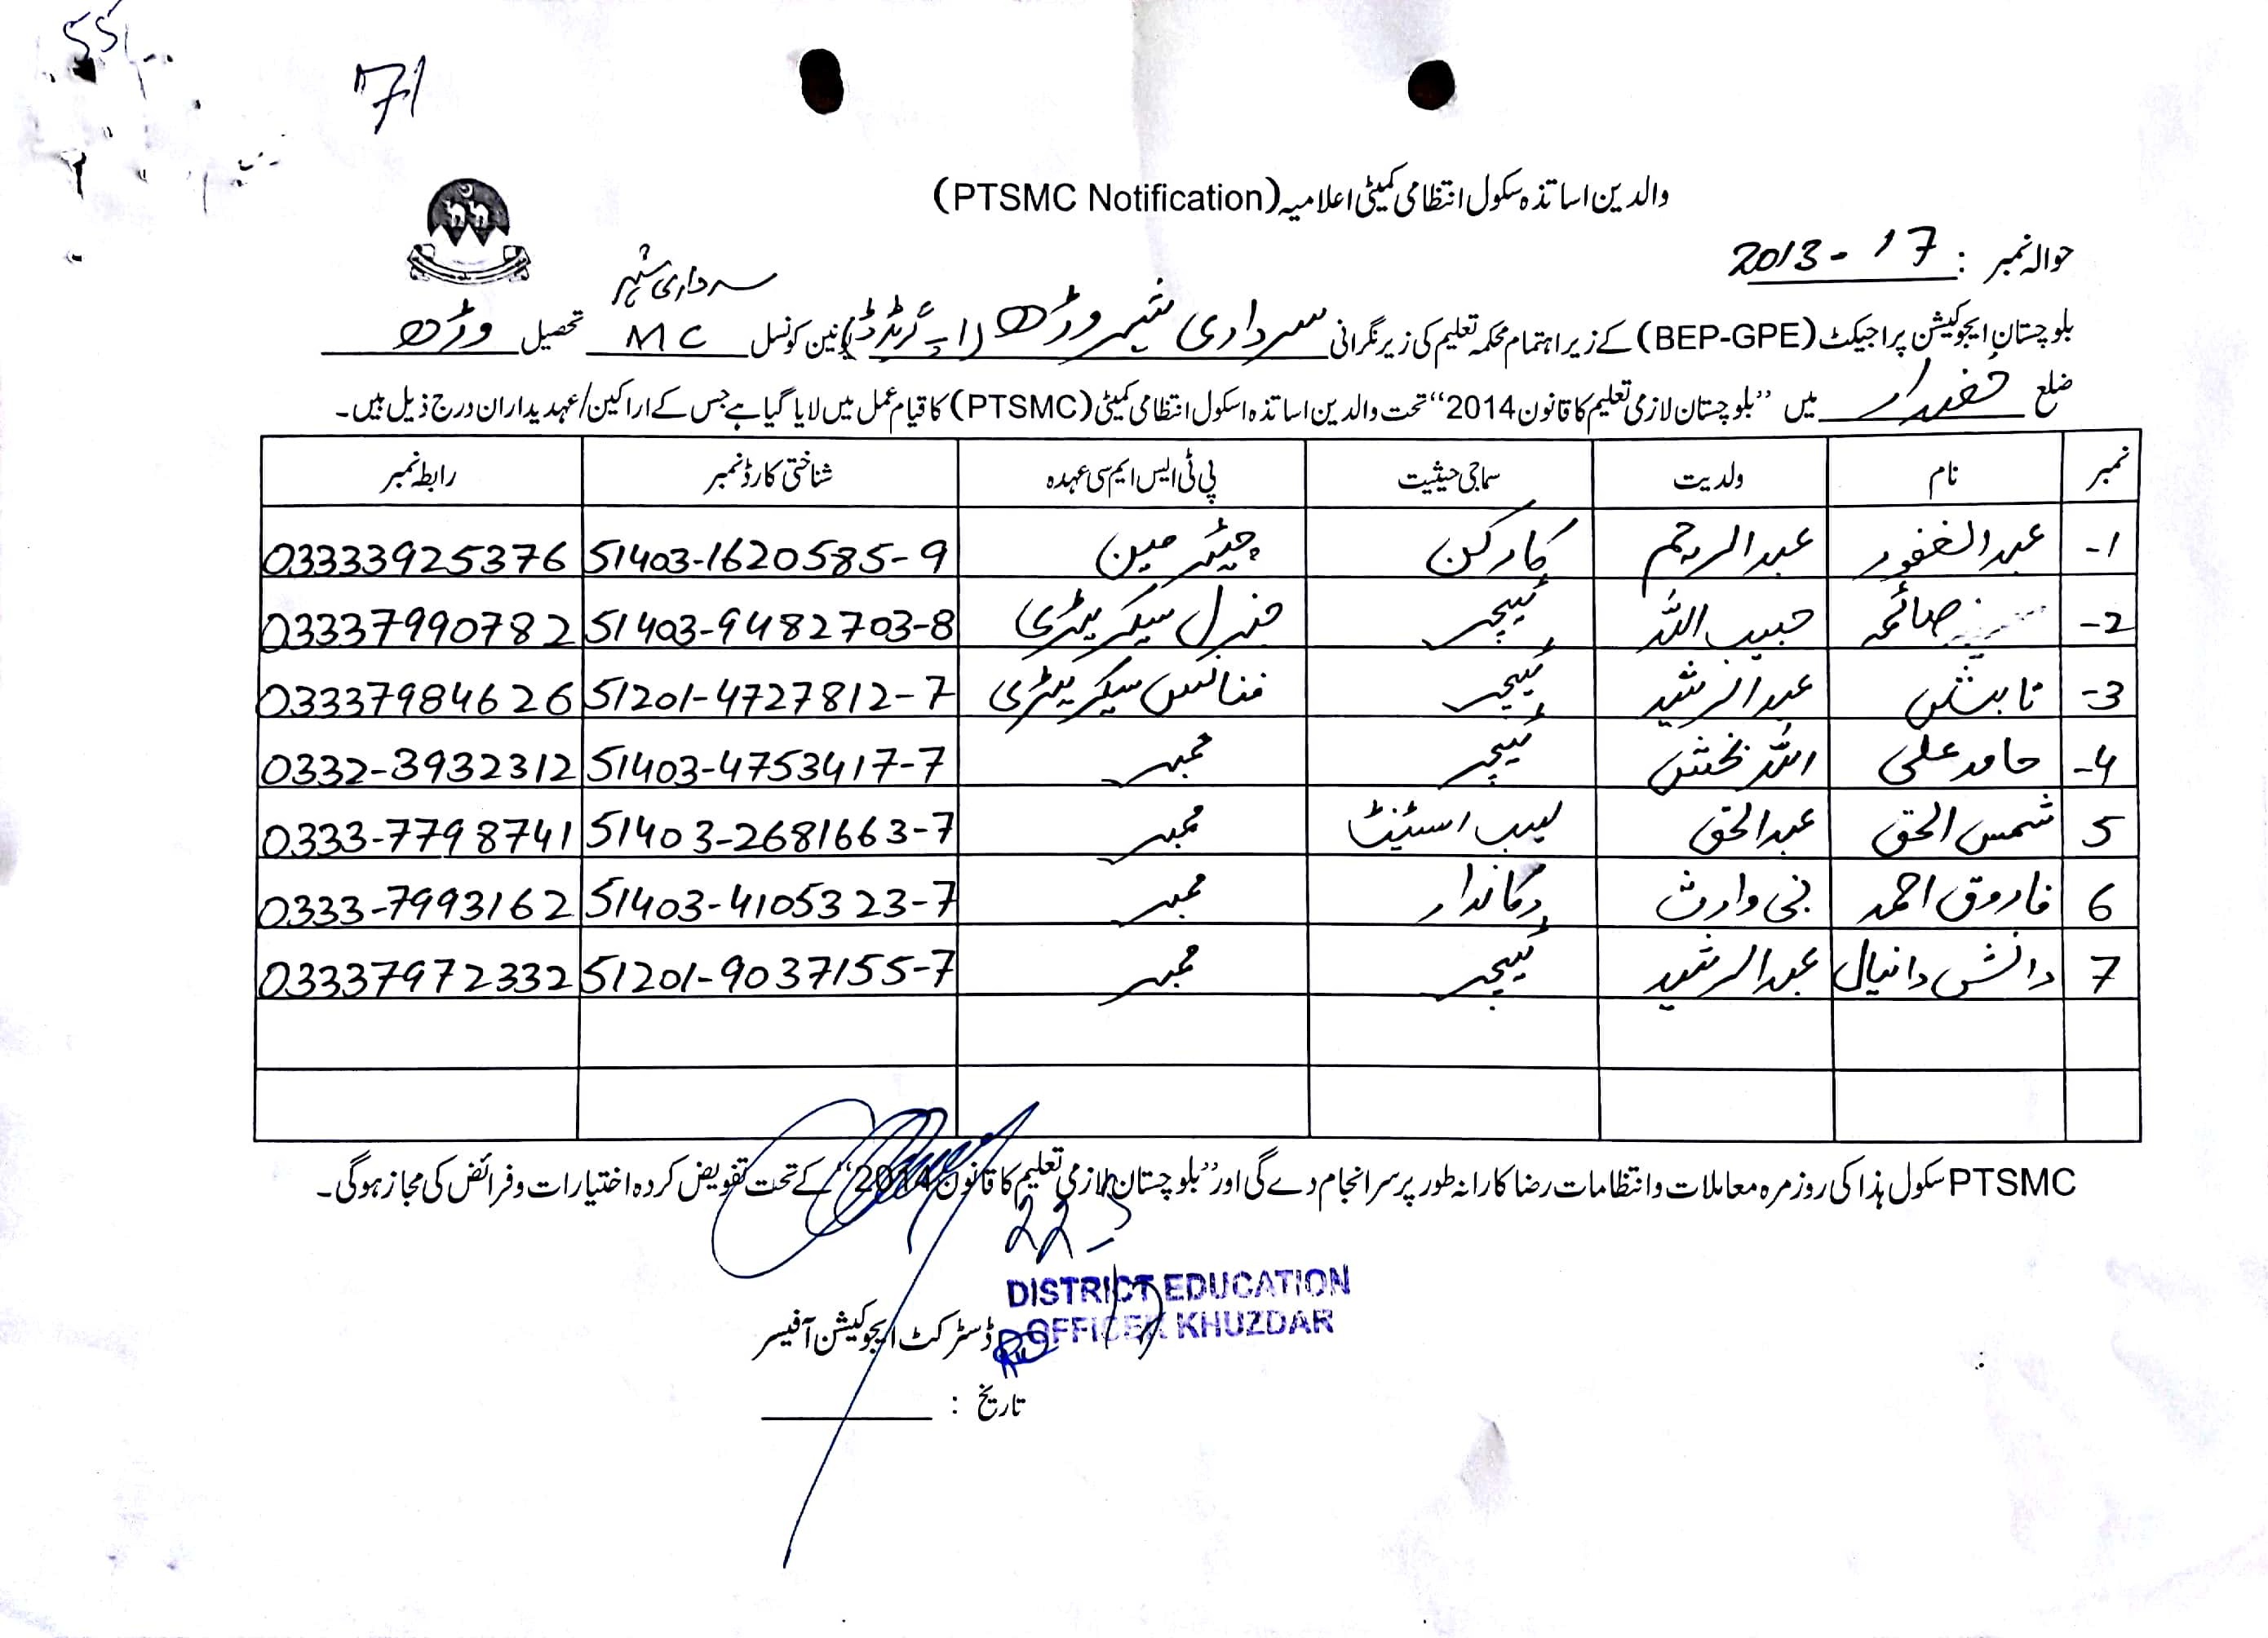 71
والدین اساتذہ سکول انتظامی کمیٹی اعلامیہ (PTSMC Notification)
حوالہ نمبر : 2013-17
سرداری شہر
بلوچستان ایجوکیشن پراجیکٹ (BEP-GPE) کے زیر اہتمام محکمہ تعلیم کی زیر نگرانی سرداری شہر وڈھ (اپ گریڈڈ) یونین کونسل MC تحصیل وڈھ
ضلع خضدار میں ”بلوچستان لازمی تعلیم کا قانون 2014“ تحت والدین اساتذہ اسکول انتظامی کمیٹی (PTSMC) کا قیام عمل میں لایا گیا ہے جس کے اراکین/عہدیداران درج ذیل ہیں۔
نمبر نام ولدیت سماجی حیثیت پی ٹی ایس ایم سی عہدہ شناختی کارڈ نمبر رابطہ نمبر
1- عبدالغفور عبدالرحیم کارکن چیئرمین 51403-1620585-9 03333925376
2- صائمہ حبیب اللہ ٹیچر جنرل سیکریٹری 51403-9482703-8 03337990782
3- تابش عبدالرشید ٹیچر فنانس سیکریٹری 51201-4727812-7 03337984626
4- حامد علی اللہ بخش ٹیچر ممبر 51403-4753417-7 0332-3932312
5 شمس الحق عبدالحق لیب اسسٹنٹ ممبر 51403-2681663-7 0333-7798741
6 فاروق احمد نبی وارث دکاندار ممبر 51403-4105323-7 0333-7993162
7 دانش دانیال عبدالرشید ٹیچر ممبر 51201-9037155-7 03337972332
PTSMC سکول ہذا کی روزمرہ معاملات و انتظامات رضا کارانہ طور پر سرانجام دے گی اور ”بلوچستان لازمی تعلیم کا قانون 2014“ کے تحت تفویض کردہ اختیارات و فرائض کی مجاز ہوگی۔
DISTRICT EDUCATION
OFFICER KHUZDAR
ڈسٹرکٹ ایجوکیشن آفیسر
تاریخ :